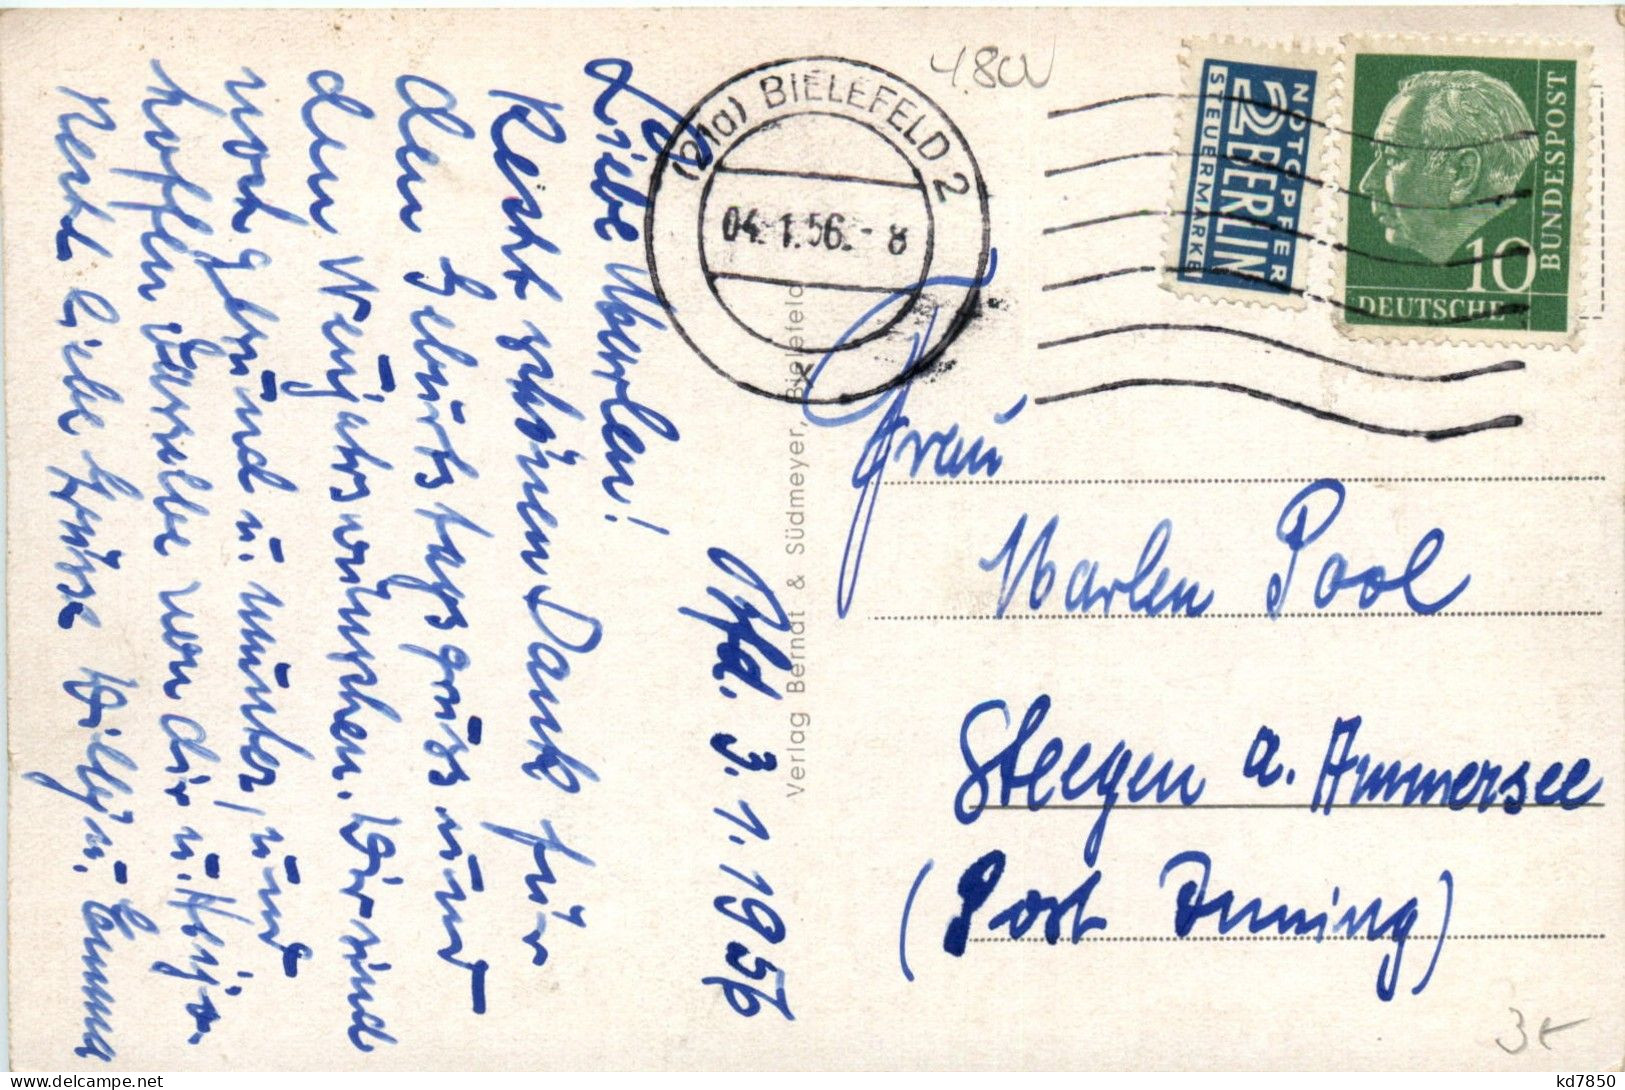 Bfd. 3.1.1956
Liebe Marlen!
Recht schönen Dank für
den Geburtstagsgruss und
den Neujahrswünschen. Wir sind
noch gesund u. munter, und
hoffen dasselbe von dir u.
Recht liebe Grüsse Willy u. Emma
(21a) BIELEFELD 2
04.1.56.-8
x
4.80
NOTOPFER
2 BERLIN
STEUERMARKE
10
DEUTSCHE
BUNDESPOST
Verlag Berndt & Südmeyer, Bielefeld
Frau
Marlen Pool
Steegen a. Ammersee
(Post Inning)
3€
delcampe.net
kd7850